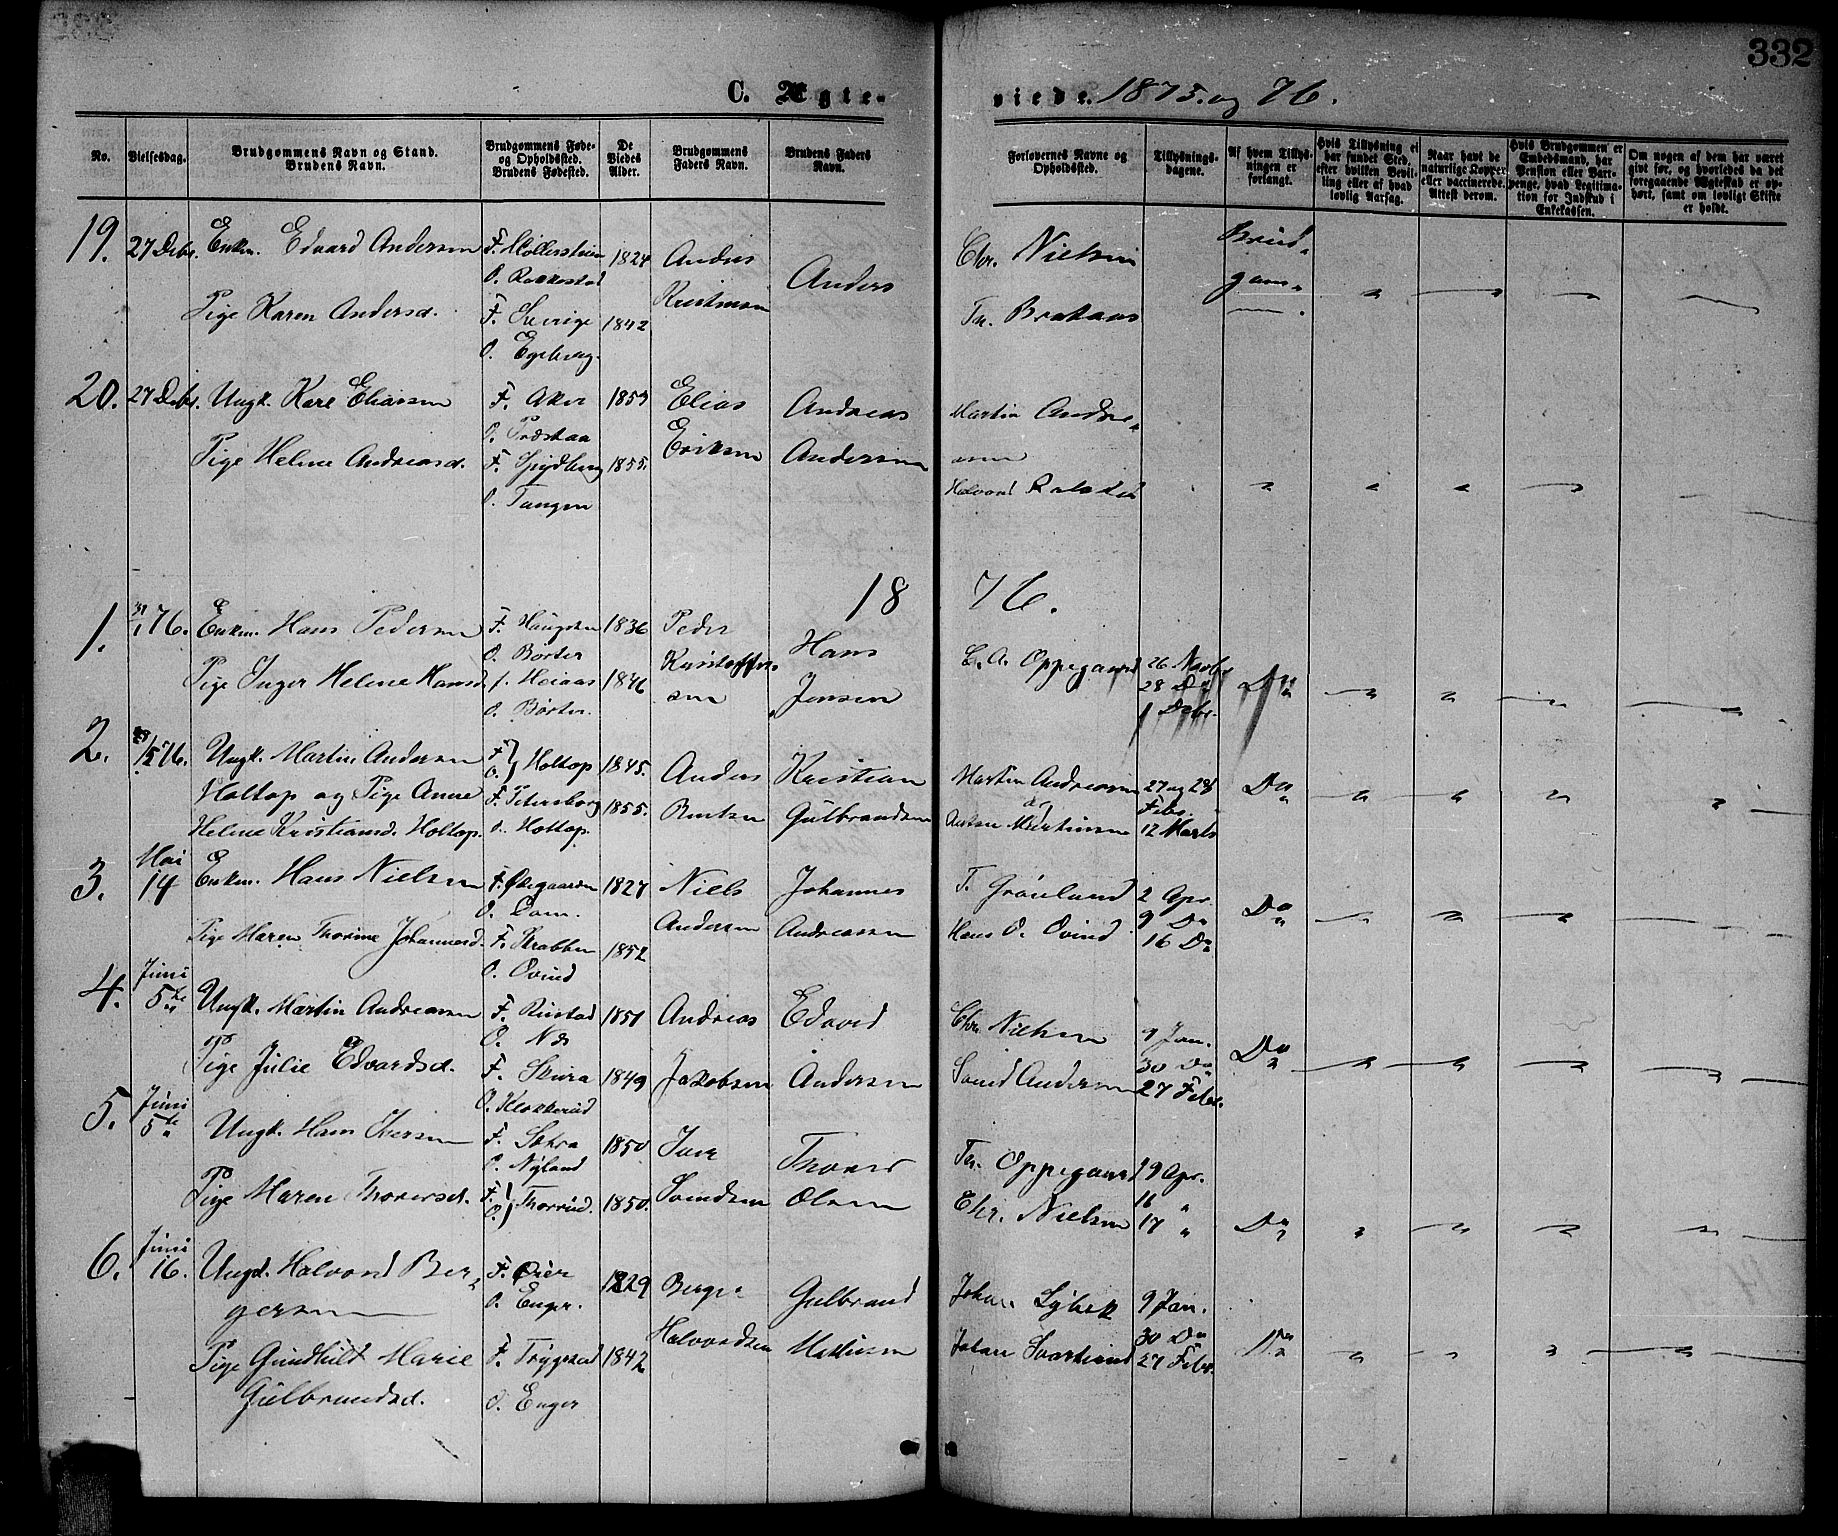 332
C. Ægte-
viede. 1875. og 76.
No.
Vielsesdag.
Brudgommens Navn og Stand.
Brudens Navn.
Brudgommens Føde-
og Opholdssted.
Brudens Fødested.
De
Viedes
Alder.
Brudgommens
Faders Navn.
Brudens Faders
Navn.
Forlovernes Navne og
Opholdssted.
Tillysnings-
dagene.
Af hvem Tillys-
ningen er
forlangt.
Hvis Tillysning ei
har fundet Sted,
efter hvilken Bevil-
ling eller af hvad
lovlig Aarsag.
Naar havt de
naturlige Kopper
eller vaccinerede.
Attest derom.
Hvis Brudgommen er
Embedsmand, har
Pension eller Vart-
penge, hvad Legitima-
tion for Indskud i
Enkekassen.
Om nogen af dem har været
gift før, og hvorledes da det
foregaaende Ægteskab er op-
hørt, samt om lovligt Skifte
er holdt.
19. 27 Debr. Enkm. Edvard Andersen F. 1824 Anders Chr. Nielsen Brud-
O. Rakkestad Anders gom-
Pige Karen Andersd. F. Sverige 1842
O.
20. 27 Debr. Ungk. Karl Eliasen F. Aker Elias Andreas Martin Andre-
O. Eriksen Andersen asen
Pige Helene Andreasd. F. Spydberg 1855. Halvord
O. Tangen
18 76.
1. 31/1 76. Enkm. Hans Pedersen F. Haugsten 1836 Peder Hans C. A. Oppegaard 26 Novbr
O. Børter Kristoffer- 28 Do Do
Pige Inger Helene Hansd. f. Heiaas 1846 sen Jensen 1 Debr.
O. Børter.
2. 76. Ungk. Martin Andersen F. O. } Holtop 1845. Anders Kristian Martin Andreasen 27 og 28 Do
Holtop og Pige Anne F. Petersborg 1855. Gulbrandsen Febr.
Helene Kristiansd. Holtop. O. Holtop. Martinsen 12 Marts
3. Mai
14 Enkm. Hans Nielsen F. 1827 Niels Johannes T. Grönlund 2 Apr.
O. Dam. Andersen Andreasen 9 Do Do
Pige Maren Thorine Johannesd. F. Krabben 1852 Hans O. Ovind 16 Do
O. Ovind
4. Juni
5te Ungk. Martin Andreasen F. Rustad 1851 Andreas Edvard Chr. Nielsen 9 Jan.
O. Næs 30 Do Do
Pige Julie Edvardsd. F. Skura 1849 Jakobsen Andersen Andersen 27 Febr.
O. Klokkerud
5. Juni
5te Ungk. Hans Iversen F. 1850 Iver Thorer Oppegaard 9 Apr.
O. Nyland 16 "
Pige Maren Thorersd. F. O. } Thorrud. 1850. Svendsen Olsen Chr. Nielsen 17 " Do
6. Juni
16. Ungk. Halvord Ber- F. 1829 Berger Gulbrand Johan 9 Jan.
gersen O. Enger. 30 Do
Pige Gundhild Marie F. Trygstad 1842 Halvordsen Johan 27 Febr. Do
Gulbrandsd. O. Enger